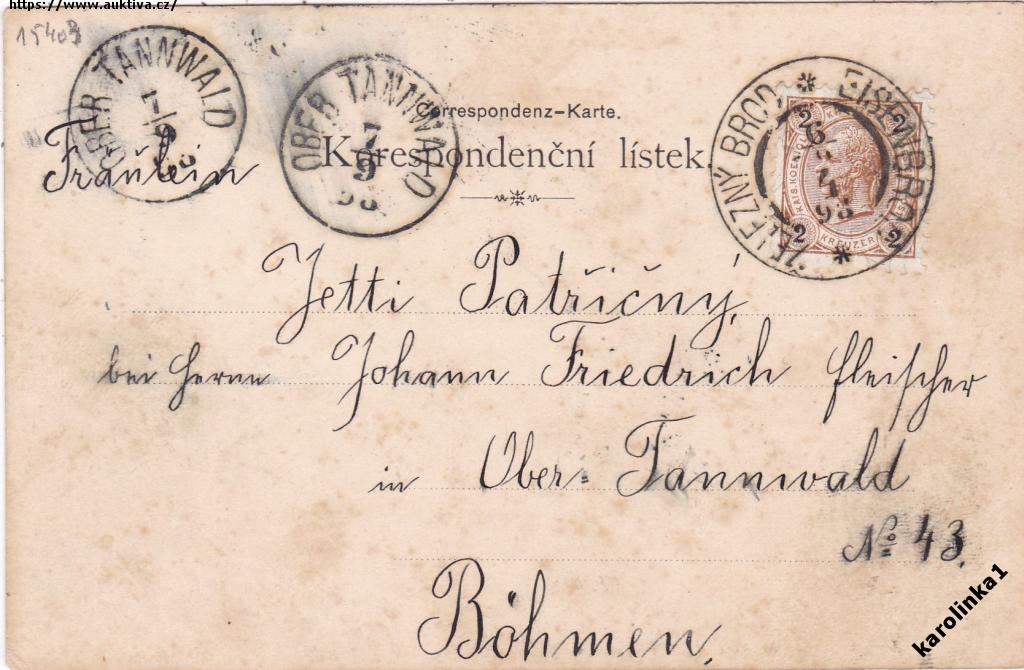 https://www.auktiva.cz/
15403
OBER TANNWALD
7/9
98
OBER TANNWALD
7
9
98
Correspondenz-Karte.
Korespondenční lístek.
EISENBROD
ŽELEZNÝ BROD
2 2
KREUZER
2 2
Fräulein
Jetti Patřičný,
bei Herrn Johann Friedrich fleischer
in Ober-Tannwald
No 43.
Böhmen,
karolinka1